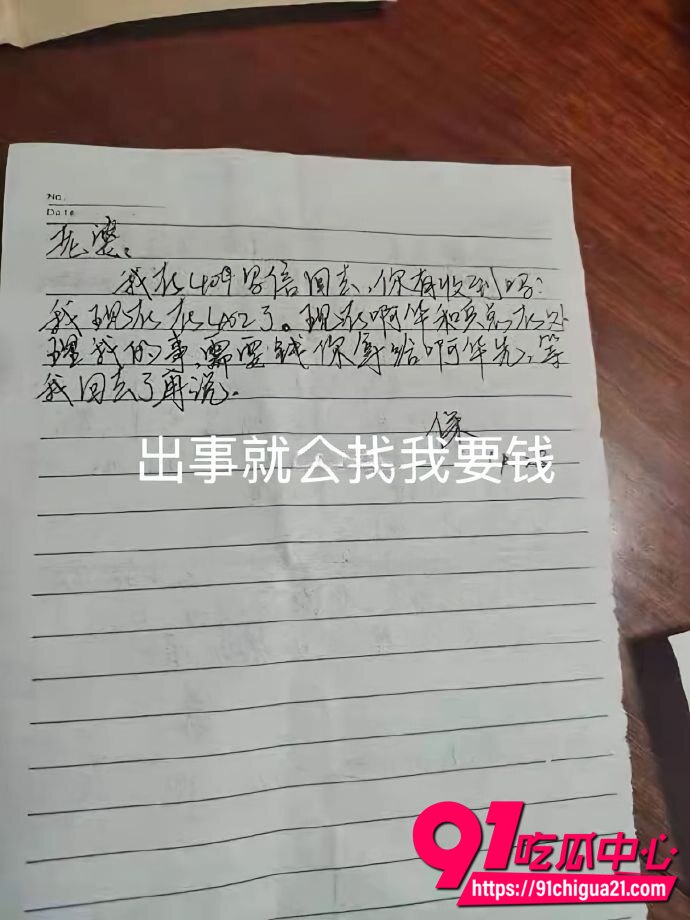 No.
Date
老婆：
我在409写信回去，你有收到吗？
我现在在402了。现在啊华和吴总在处
理我的事，需要钱你拿给啊华先，等
我回去了再说。
保
出事就会找我要钱
91吃瓜中心
https://91chigua21.com